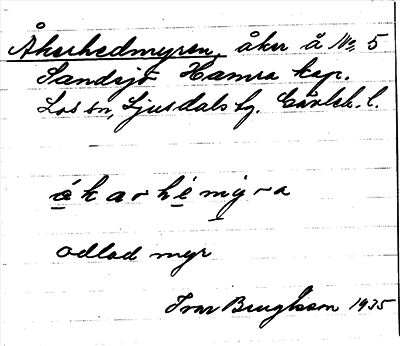 Åkerhedmyren, åker å No 5
Sandsjö Hamra kap.
Los sn, Ljusdals tg. Gävleb. l.
åkarhémýra
odlad myr
Ivar Bengtsson 1935